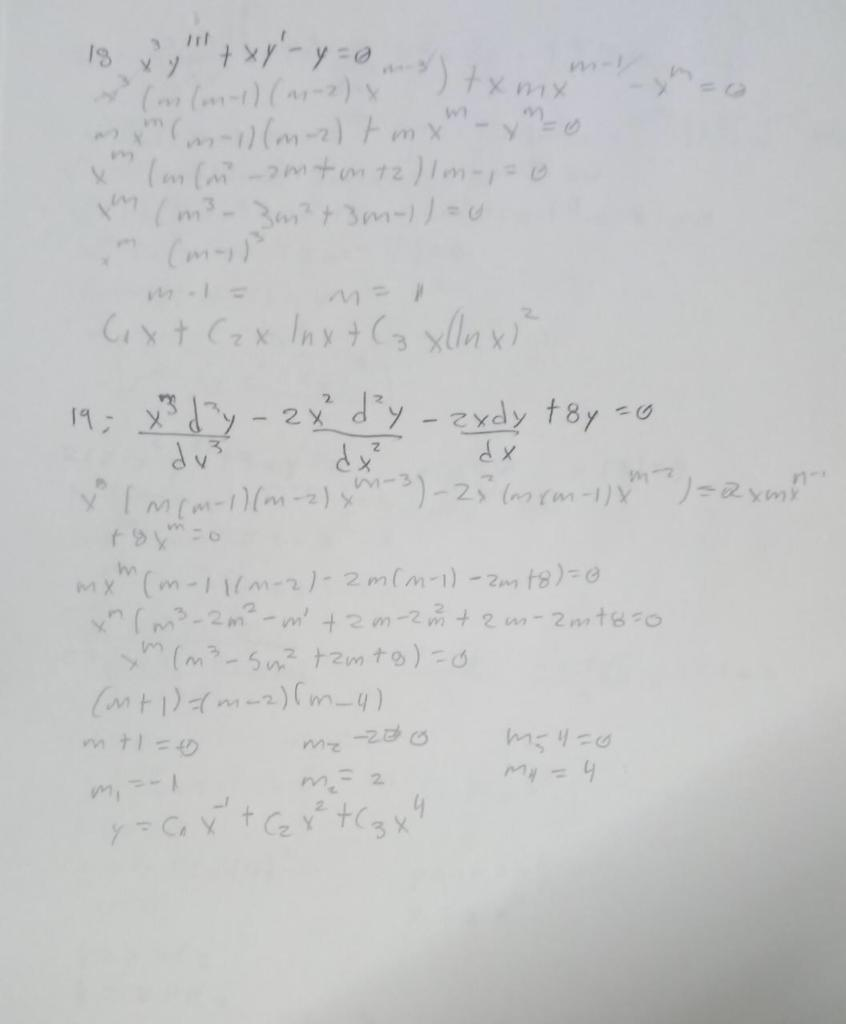 18 x³y''' + xy' - y = 0
x³ (m(m-1)(m-2) x^(m-3)) + x m x^(m-1) - x^m = 0
m x^m (m-1)(m-2) + m x^m - x^m = 0
x^m (m(m² - 2m + m + 2) | m - 1 = 0
x^m (m³ - 3m² + 3m - 1) = 0
x^m (m-1)³
m - 1 = m = 1
C₁x + C₂x lnx + C₃ x(lnx)²
19; x³d³y/dv³ - 2x² d²y/dx² - 2xdy/dx + 8y = 0
x³ (m(m-1)(m-2) x^(m-3)) - 2x² (m(m-1)x^(m-2)) = 2xmx^(m-
+ 8x^m = 0
mx^m (m-1)(m-2) - 2m(m-1) - 2m + 8) = 0
x^m (m³ - 2m² - m' + 2m - 2m² + 2m - 2m + 8 = 0
x^m (m³ - 5m² + 2m + 8) = 0
(m+1) = (m-2)(m-4)
m + 1 = 0 m₂ - 2 = 0 m₃ - 4 = 0
m₁ = -1 m₂ = 2 m₄ = 4
y = C₁ x⁻¹ + C₂ x² + C₃ x⁴